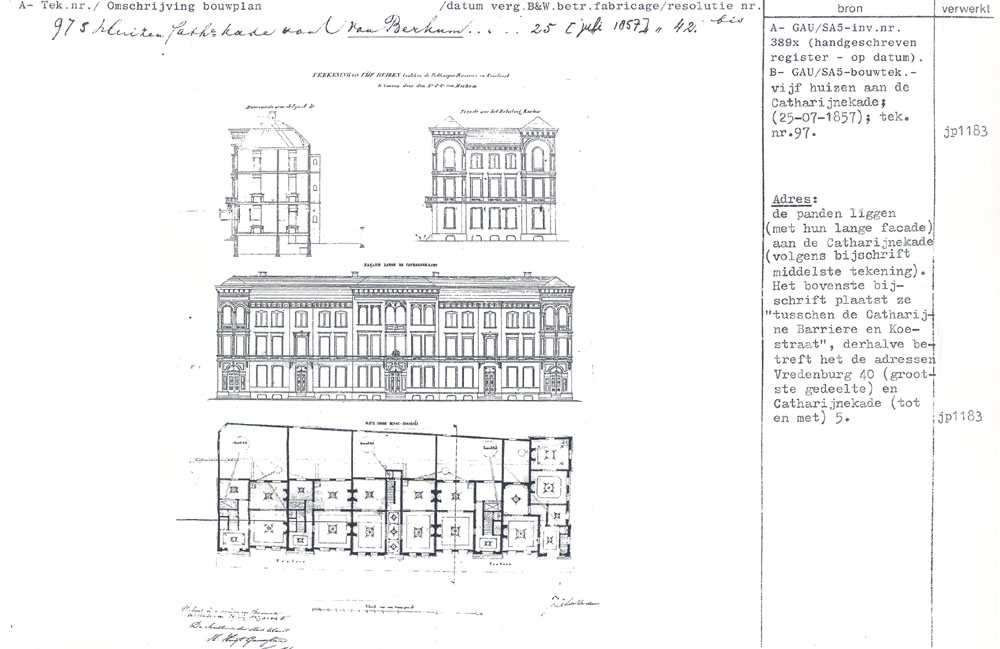 A- Tek.nr./ Omschrijving bouwplan /datum verg.B&W.betr.fabricage/resolutie nr. bron verwerkt
97 5 Huizen Cath. kade van van Berkum... 25 [juli 1857] „ 42. bis
TEEKENING van VIJF HUIZEN tusschen de Catharyne Barriere en Koestraat
te bouwen door den Hr
Doorsnede over de lyn A B
FACADE LANGS DE CATHARIJNEKADE
Tuin
A- GAU/SA5-inv.nr.
389x (handgeschreven
register - op datum).
B- GAU/SA5-bouwtek.-
vijf huizen aan de
Catharijnekade;
(25-07-1857); tek.
nr.97.
jp1183
Adres:
de panden liggen
(met hun lange facade)
aan de Catharijnekade
(volgens bijschrift
middelste tekening).
Het bovenste bij-
schrift plaatst ze
"tusschen de Catharij-
ne Barriere en Koe-
straat", derhalve be-
treft het de adressen
Vredenburg 40 (groot-
ste gedeelte) en
Catharijnekade (tot
en met) 5.
jp1183